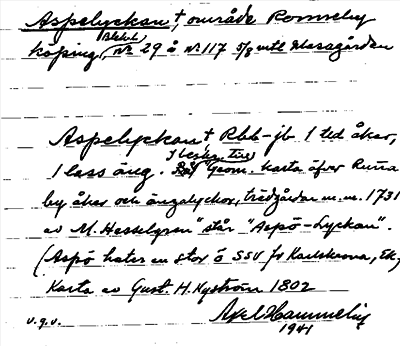 Aspelyckan †, område Ronneby
Blek.l.
köping, Nr 29 å Nr 117 5/8 mtl Masagården
Aspelyckan † Rbb-jb 1 td åker,
1 lass äng. I beskr. till Geom. karta öfver Ruña
by åker och ängalyckor, trädgårdar m.m. 1731
av M. Hesselgren "står "Aspö-Lyckan".
(Aspö heter en stor ö SSV fr Karlskrona, Ek,
Karta av Gust. H. Nyström 1802
Axel Hammelin
u.g.v.
1941